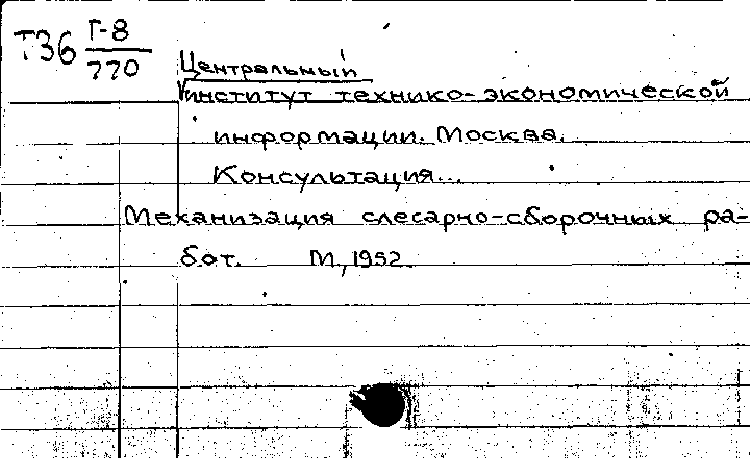 Т36 Г-8
770
Центральный
институт технико-экономической
информации. Москва.
Консультация...
Механизация слесарно-сборочных ра-
бот. М., 1952.